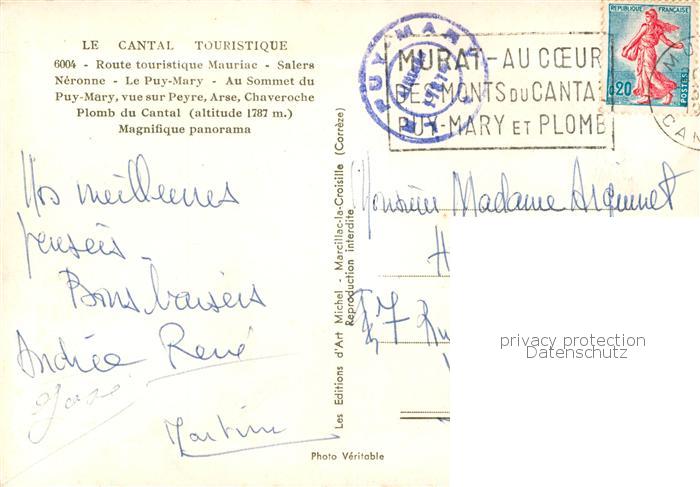 LE CANTAL TOURISTIQUE
6004 - Route touristique Mauriac - Salers
Néronne - Le Puy-Mary - Au Sommet du
Puy-Mary, vue sur Peyre, Arse, Chaveroche
Plomb du Cantal (altitude 1787 m.)
Magnifique panorama
Nos meilleures
pensées
Bons baisers
Andrée René
Martine
Les Editions d'Art Michel - Marcillac-la-Croisille (Corrèze)
Reproduction interdite
Photo Véritable
PUY MARY
MURAT-AU CŒUR
DES MONTS DU CANTA
PUY-MARY ET PLOMB
REPUBLIQUE FRANÇAISE
0,20
POSTES
Monsieur Madame
H
47 Ru
privacy protection
Datenschutz